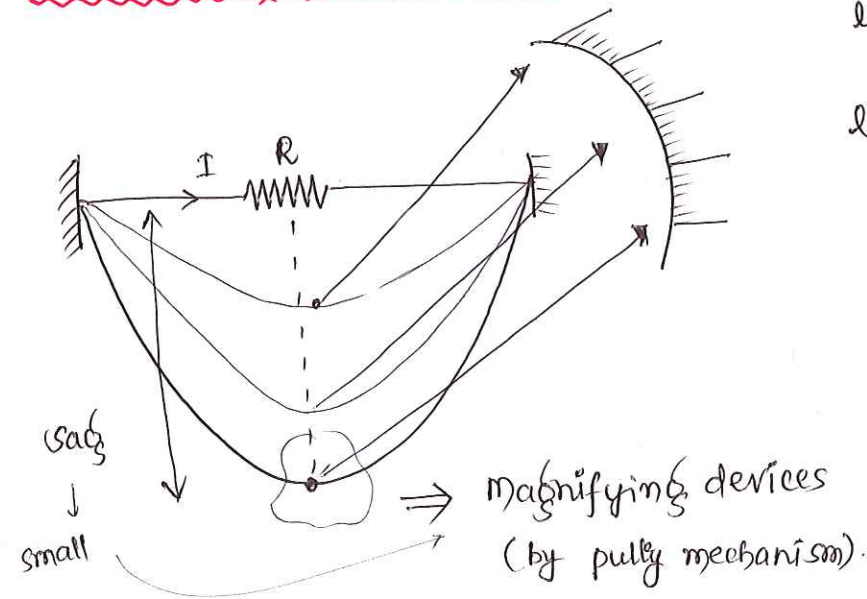 l
l
I R
sag
↓
small
⇒ Magnifying devices
(by pully mechanism).